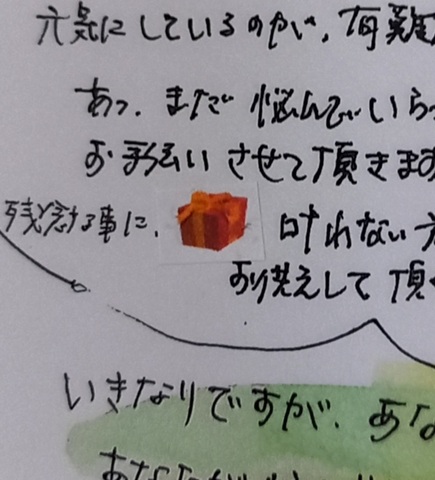 元気にしているのが、有難
あっ、まだ悩んでいらっ
お手伝いさせて頂きます
残念な事に、 叶れない方
お控えして頂
いきなりですが、あな